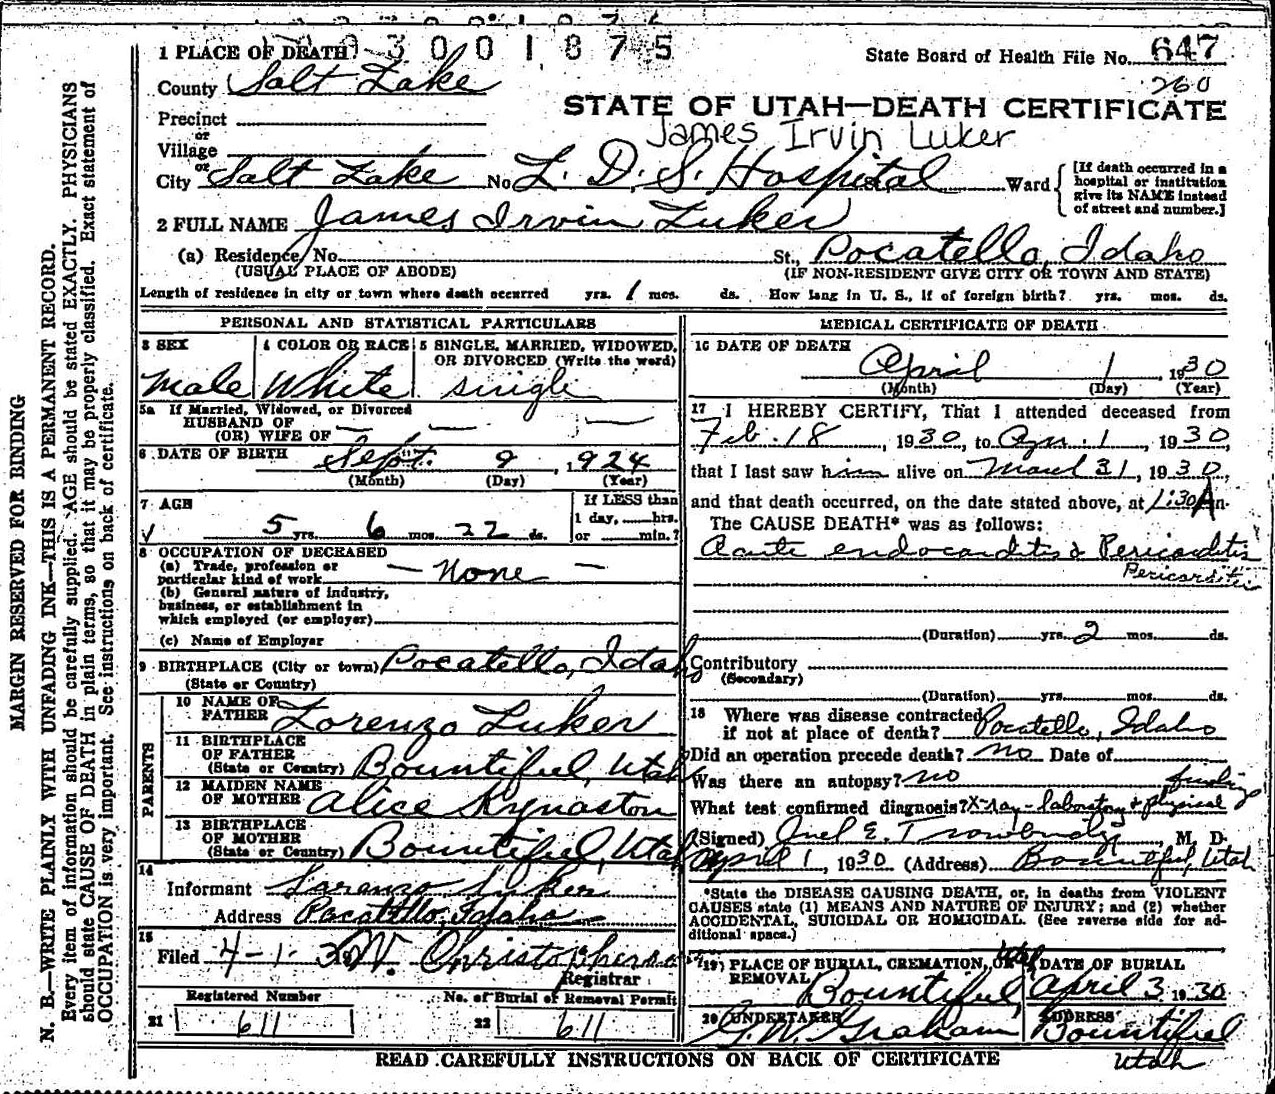 3 0 0 1 8 7 5
1 PLACE OF DEATH
State Board of Health File No. 647
260
County Salt Lake
STATE OF UTAH—DEATH CERTIFICATE
James Irvin Luker
Precinct
or
Village
or
City Salt Lake No. L. D. S. Hospital Ward
[If death occurred in a
hospital or institution
give its NAME instead
of street and number.]
2 FULL NAME James Irvin Luker
(a) Residence, No. St., Pocatello, Idaho
(USUAL PLACE OF ABODE) (IF NON-RESIDENT GIVE CITY OR TOWN AND STATE)
Length of residence in city or town where death occurred yrs. 1 mos. ds. How long in U. S., if of foreign birth? yrs. mos. ds.
PERSONAL AND STATISTICAL PARTICULARS
3 SEX 4 COLOR OR RACE 5 SINGLE, MARRIED, WIDOWED,
OR DIVORCED (Write the word)
Male White single
5a If Married, Widowed, or Divorced
HUSBAND OF
(OR) WIFE OF — — —
6 DATE OF BIRTH Sept. 9, 1924
(Month) (Day) (Year)
7 AGE If LESS than
5 yrs. 6 mos. 22 ds. 1 day, hrs.
or min.?
8 OCCUPATION OF DECEASED
(a) Trade, profession or
particular kind of work — None —
(b) General nature of industry,
business, or establishment in
which employed (or employer)
(c) Name of Employer
9 BIRTHPLACE (City or town) Pocatello, Idaho
(State or Country)
PARENTS
10 NAME OF
FATHER Lorenzo Luker
11 BIRTHPLACE
OF FATHER
(State or Country) Bountiful, Utah
12 MAIDEN NAME
OF MOTHER Alice Kynaston
13 BIRTHPLACE
OF MOTHER
(State or Country) Bountiful, Utah
14
Informant Lorenzo Luker
Address Pocatello, Idaho
15
Filed 4-1-30 Christopherson
Registrar
Registered Number No. of Burial or Removal Permit
21 611 22 611
MEDICAL CERTIFICATE OF DEATH
16 DATE OF DEATH
April 1, 1930
(Month) (Day) (Year)
17 I HEREBY CERTIFY, That I attended deceased from
Feb. 18, 1930, to Apr. 1, 1930,
that I last saw him alive on March 31, 1930,
and that death occurred, on the date stated above, at 1:30 A m.
The CAUSE DEATH* was as follows:
Acute endocarditis & Pericarditis
Pericarditis
(Duration) yrs. 2 mos. ds.
Contributory
(Secondary)
(Duration) yrs. mos. ds.
18 Where was disease contracted
if not at place of death? Pocatello, Idaho
Did an operation precede death? no Date of
Was there an autopsy? no
What test confirmed diagnosis? X-ray - laboratory & physical findings
(Signed) Joel E. Trowbridge, M. D.
April 1, 1930 (Address) Bountiful, Utah
*State the DISEASE CAUSING DEATH, or, in deaths from VIOLENT
CAUSES state (1) MEANS AND NATURE OF INJURY; and (2) whether
ACCIDENTAL, SUICIDAL OR HOMICIDAL. (See reverse side for ad-
ditional space.)
19 PLACE OF BURIAL, CREMATION, OR DATE OF BURIAL
REMOVAL Bountiful Utah April 3 1930
20 UNDERTAKER ADDRESS
G. W. Graham Bountiful
Utah
READ CAREFULLY INSTRUCTIONS ON BACK OF CERTIFICATE
MARGIN RESERVED FOR BINDING
N. B.—WRITE PLAINLY WITH UNFADING INK—THIS IS A PERMANENT RECORD.
Every item of information should be carefully supplied. AGE should be stated EXACTLY. PHYSICIANS
should state CAUSE OF DEATH in plain terms, so that it may be properly classified. Exact statement of
OCCUPATION is very important. See instructions on back of certificate.